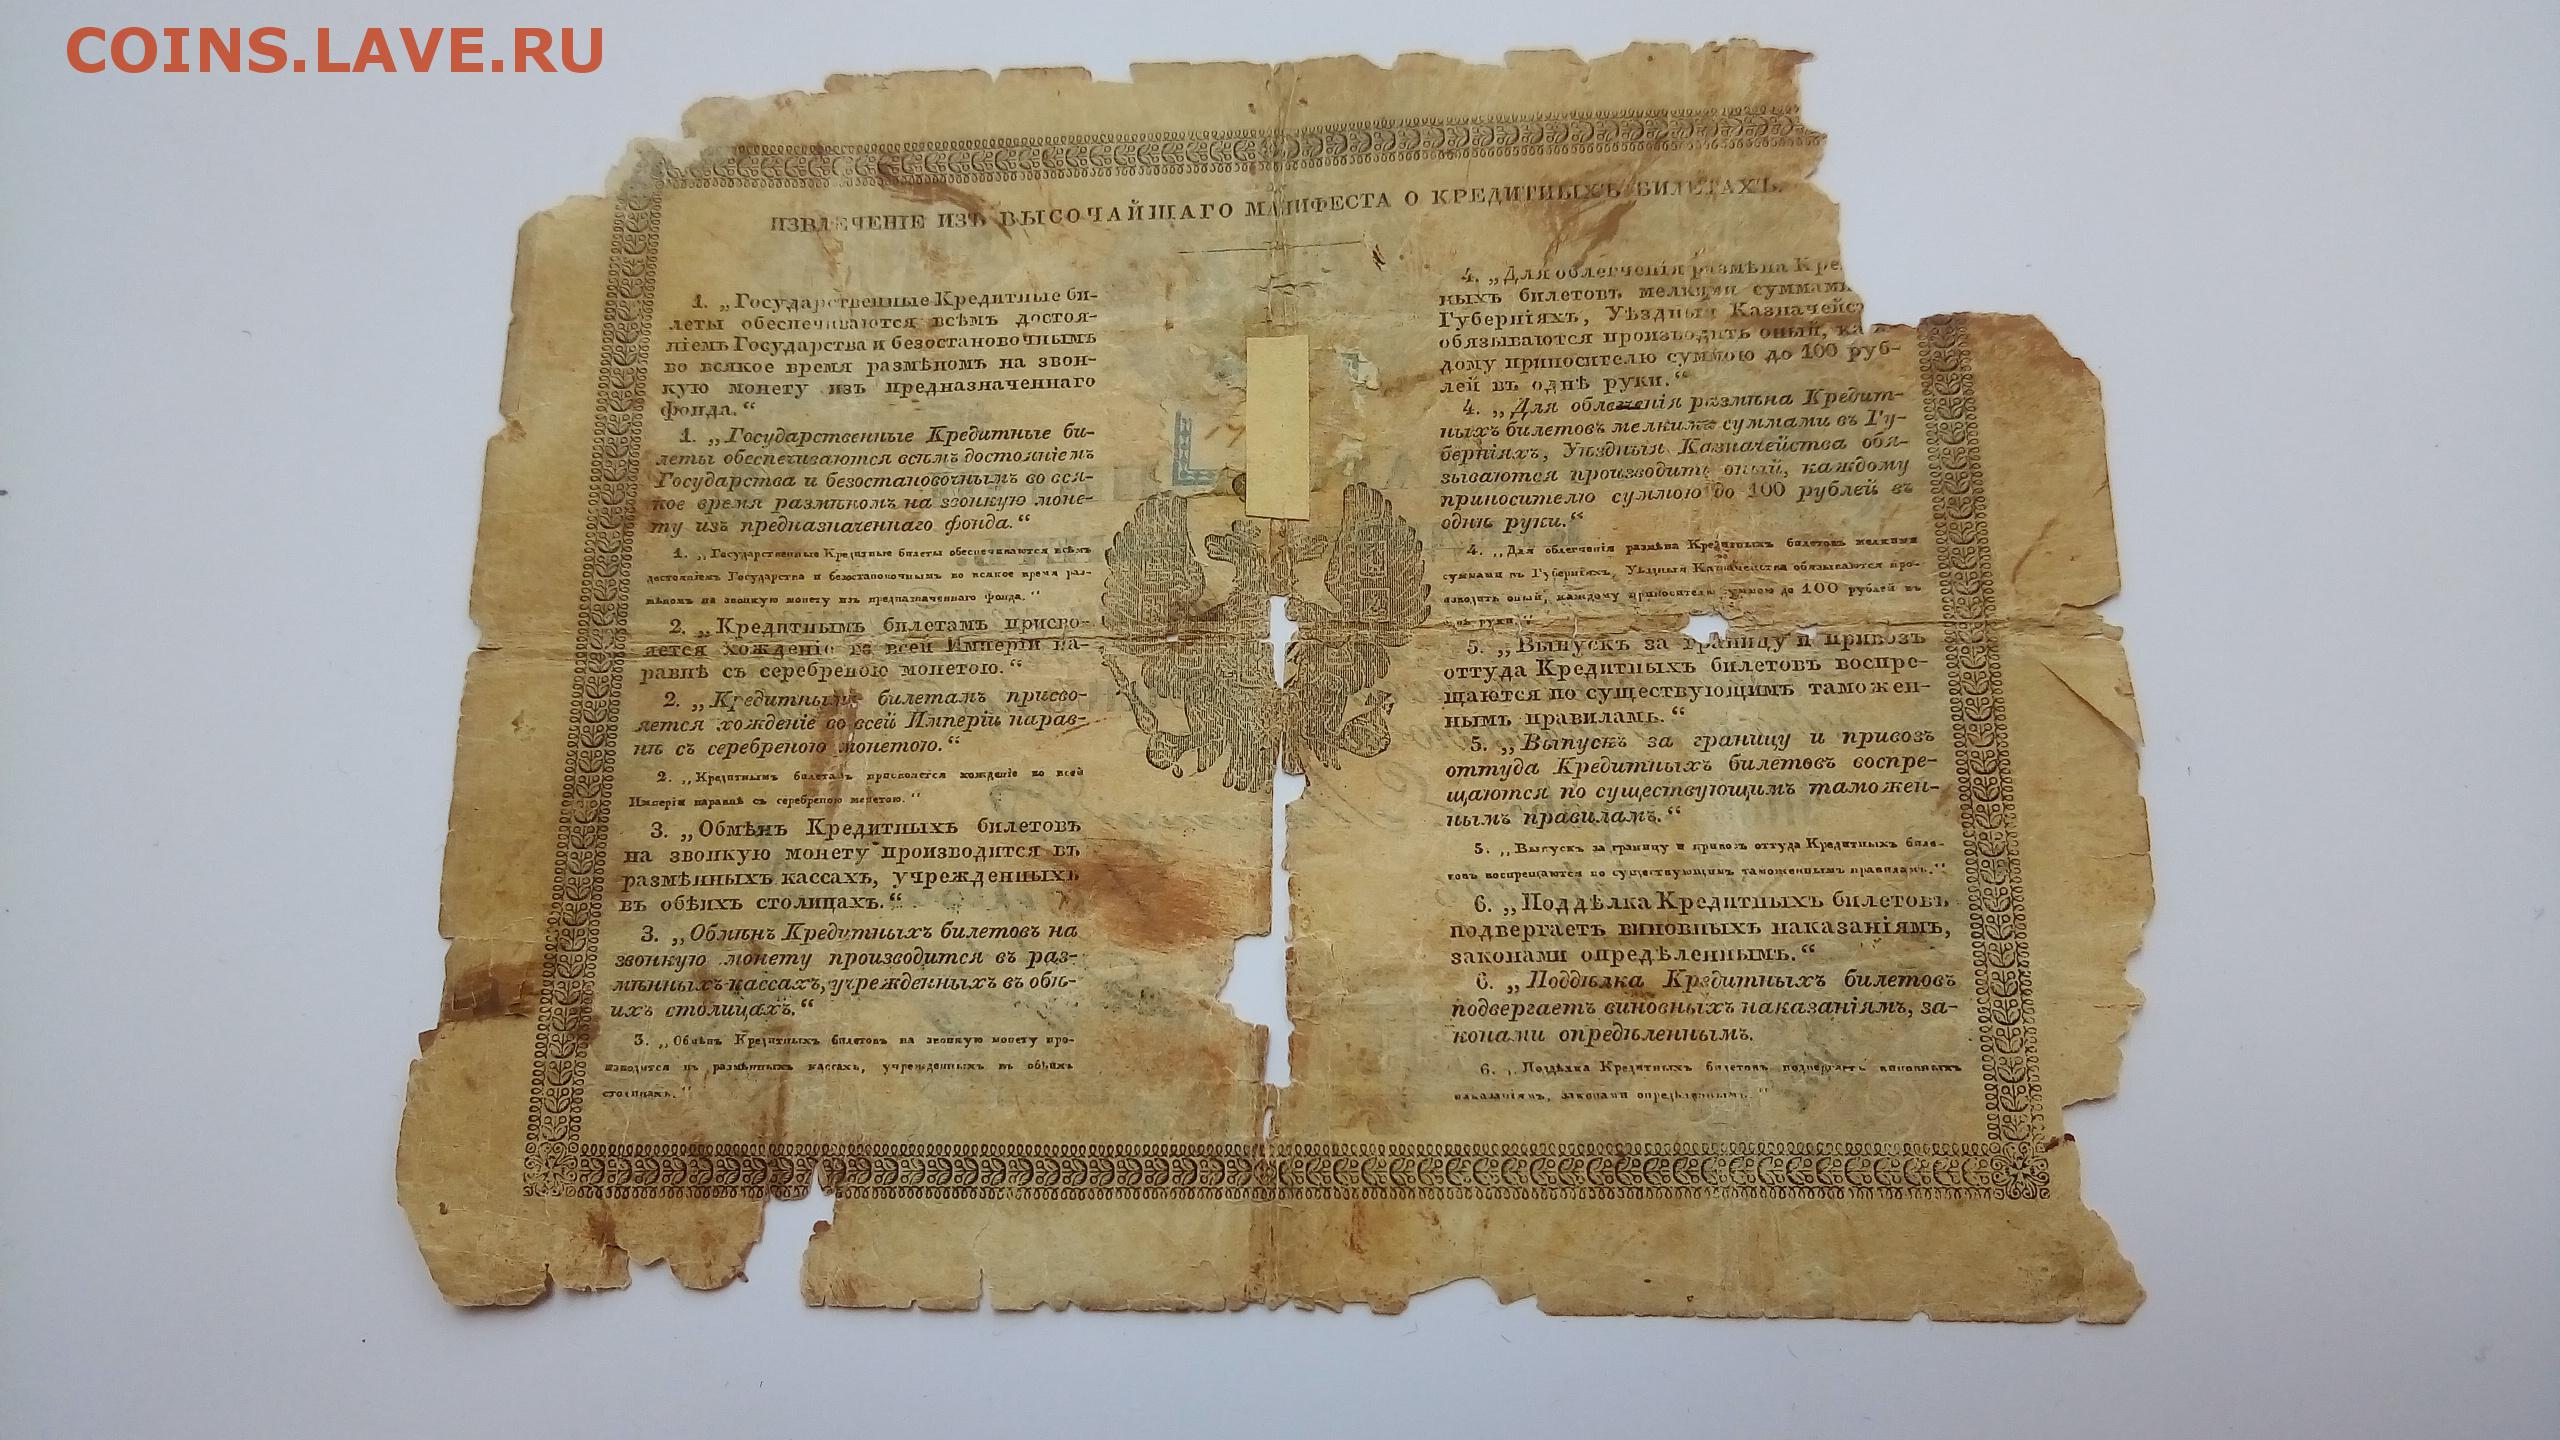 COINS.LAVE.RU
ИЗВЛЕЧЕНІЕ ИЗЪ ВЫСОЧАЙШАГО МАНИФЕСТА О КРЕДИТНЫХЪ БИЛЕТАХЪ.
1. „Государственные Кредитные би-
леты обеспечиваются всѣмъ достоя-
ніемъ Государства и безостановочнымъ
во всякое время размѣномъ на звон-
кую монету изъ предназначеннаго
фонда.“
1. „Государственные Кредитные би-
леты обеспечиваются всѣмъ достояніемъ
Государства и безостановочнымъ во вся-
кое время размѣномъ на звонкую моне-
ту изъ предназначеннаго фонда.“
1. „Государственные Кредитные билеты обеспечиваются всѣмъ
достояніемъ Государства и безостановочнымъ во всякое время раз-
мѣномъ на звонкую монету изъ предназначеннаго фонда.“
2. „Кредитнымъ билетамъ присво-
яется хожденіе во всей Имперіи на-
равнѣ съ серебреною монетою.“
2. „Кредитнымъ билетамъ присво-
яется хожденіе во всей Имперіи нарав-
нѣ съ серебреною монетою.“
2. „Кредитнымъ билетамъ присвояется хожденіе во всей
Имперіи наравнѣ съ серебреною монетою.“
3. „Обмѣнъ Кредитныхъ билетовъ
на звонкую монету производится въ
размѣнныхъ кассахъ, учрежденныхъ
въ обѣихъ столицахъ.“
3. „Обмѣнъ Кредитныхъ билетовъ на
звонкую монету производится въ раз-
мѣнныхъ кассахъ, учрежденныхъ въ обѣ-
ихъ столицахъ.“
3. „Обмѣнъ Кредитныхъ билетовъ на звонкую монету про-
изводится въ размѣнныхъ кассахъ, учрежденныхъ въ обѣихъ
столицахъ.“
4. „Для облегченія размѣна Кре
ныхъ билетовъ мелкими суммами
Губерніяхъ, Уѣздныя Казначейс
обязываются производить оный, ка
дому приносителю суммою до 100 руб-
лей въ однѣ руки.“
4. „Для облегченія размѣна Кредит-
ныхъ билетовъ мелкими суммами въ Гу-
берніяхъ, Уѣздныя Казначейства обя-
зываются производить оный, каждому
приносителю суммою до 100 рублей въ
однѣ руки.“
4. „Для облегченія размѣна Кредитныхъ билетовъ мелкими
суммами въ Губерніяхъ, Уѣздныя Казначейства обязываются про-
изводить оный, каждому приносителю суммою до 100 рублей въ
руки.“
5. „Выпускъ за границу и привозъ
оттуда Кредитныхъ билетовъ воспре-
щаются по существующимъ таможен-
нымъ правиламъ.“
5. „Выпускъ за границу и привозъ
оттуда Кредитныхъ билетовъ воспре-
щаются по существующимъ таможен-
нымъ правиламъ.“
5. „Выпускъ за границу и привозъ оттуда Кредитныхъ биле-
товъ воспрещаются по существующимъ таможеннымъ правиламъ.“
6. „Поддѣлка Кредитныхъ билетовъ
подвергаетъ виновныхъ наказаніямъ,
законами опредѣленнымъ.“
6. „Поддѣлка Кредитныхъ билетовъ
подвергаетъ виновныхъ наказаніямъ, за-
конами опредѣленнымъ.
6. „Поддѣлка Кредитныхъ билетовъ подвергаетъ виновныхъ
наказаніямъ, законами опредѣленнымъ.“